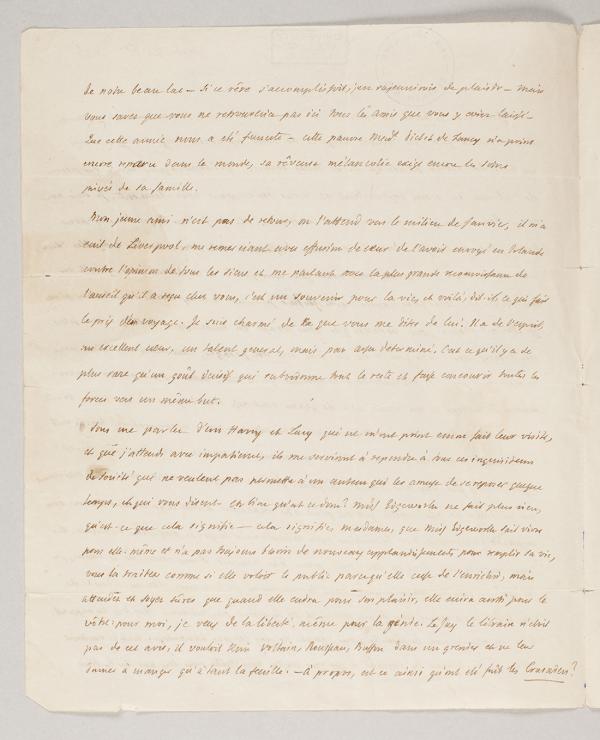 de notre beau lac — Si ce rêve s'accomplissoit, j'en rajeunirois de plaisir — mais
vous savez que vous ne retrouverez pas ici tous les amis que vous y aviez laissé —
Que cette année nous a été funeste — cette pauvre Mad. Pictet de Lancy n'a point
encore reparu dans le monde, sa rêveuse mélancolie exige encore les soins
privés de sa famille.
Mon jeune ami n'est pas de retour, on l'attend vers le milieu de Janvier, il m'a
écrit de Liverpool, me remerciant avec effusion de cœur de l'avoir envoyé en Irlande
contre l'opinion de tous les siens et me parlant avec la plus grande reconnoissance de
l'accueil qu'il a reçu chez vous, c'est un souvenir pour la vie, et voilà, dit-il, ce qui fait
le prix d'un voyage. Je suis charmé de ce que vous me dites de lui. Il a de l'esprit,
un excellent cœur, un talent general, mais pas assez determiné. C'est ce qu'il y a de
plus rare qu'un goût decisif qui subordonne tout le reste et fasse concourir toutes les
forces vers un même but.
Vous me parlez d'un Harry et Lucy qui ne m'ont point encore fait leur visite,
et que j'attends avec impatience, ils me serviront à repondre à tous ces inquisiteurs
de société qui ne veulent pas permettre à un auteur qui les amuse de se reposer quelque
temps, et qui vous disent — Eh bien qu'est ce donc? Miss Edgeworth ne fait plus rien,
qu'est-ce que cela signifie — cela signifie, mesdames, que Miss Edgeworth sait vivre
pour elle-même et n'a pas toujours besoin de nouveaux applaudissements pour remplir sa vie,
vous la traitez comme si elle voloit le public parcequ'elle cesse de l'enrichir, mais
attendez et soyez sûres que quand elle écrira pour son plaisir, elle écrira aussi pour le
vôtre: pour moi, je veux de la liberté même pour la génie. Le Jay, le libraire n'étoit
pas de cet avis, il vouloit tenir Voltaire, Rousseau, Buffon dans un grenier et ne leur
donner à manger qu'à tant la feuille. — A propos, est ce ainsi qu'ont été faits les Crusaders?